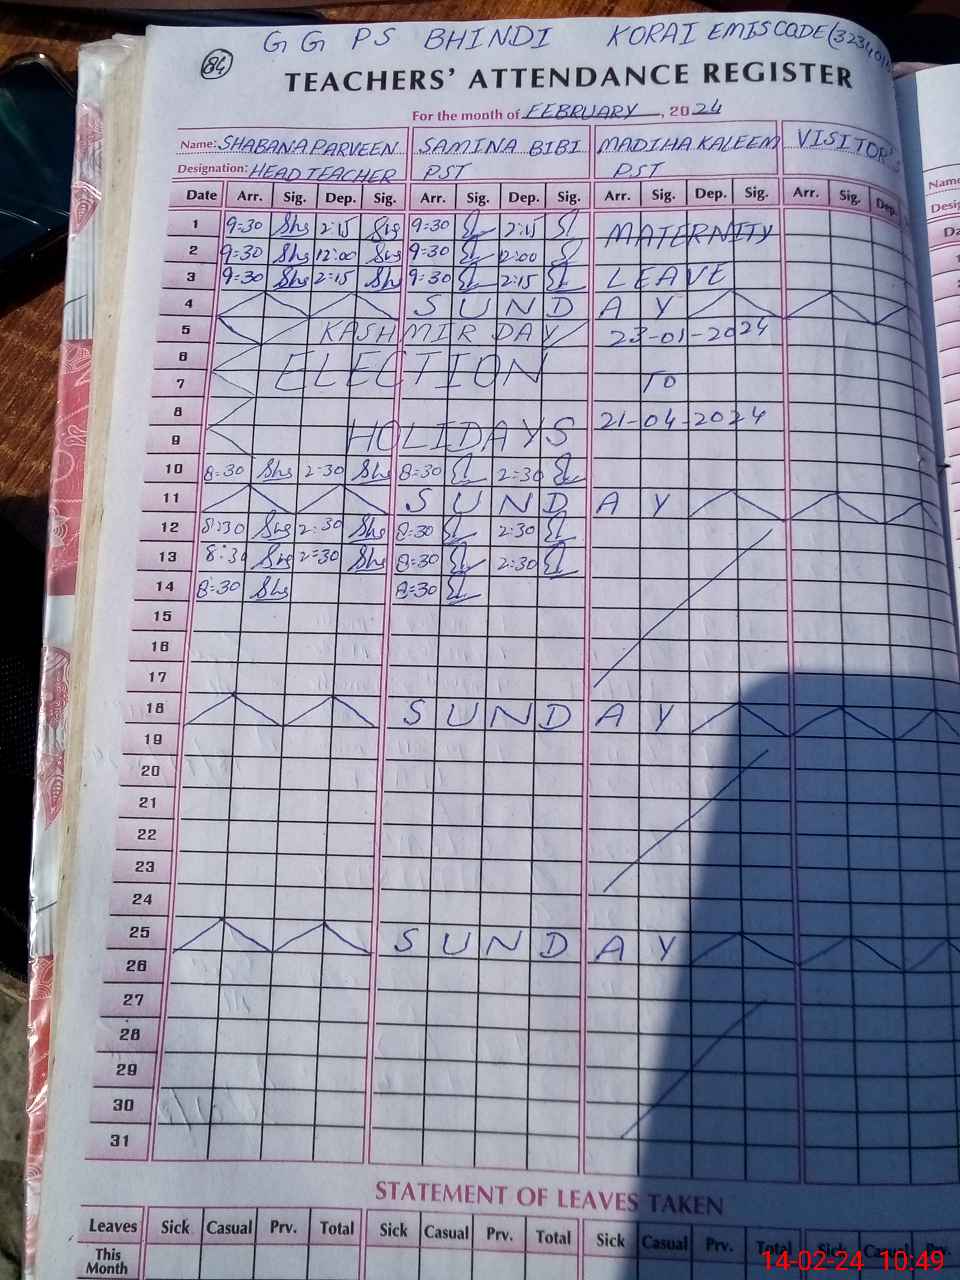 G G P S BHINDI KORAI EMIS CODE (
84
TEACHERS' ATTENDANCE REGISTER
For the month of FEBRUARY, 2024
Name: SHABANA PARVEEN SAMINA BIBI MADIHA KALEEM VISITOR'S
Designation: HEAD TEACHER PST PST
Date Arr. Sig. Dep. Sig. Arr. Sig. Dep. Sig. Arr. Sig. Dep. Sig. Arr. Sig. Dep.
1 9=30 Shs 2:15 Shs 9=30 2:15 MATERNITY
2 9=30 Shs 12:00 Shs 9=30 12:00
3 9=30 Shs 2=15 Shs 9=30 2=15 LEAVE
4 S U N D A Y
5 KASHMIR DAY 23-01-2024
6 ELECTION
7 TO
8 21-04-2024
9 HOLIDAYS
10 8=30 Shs 2=30 Shs 8=30 2=30
11 S U N D A Y
12 8:30 Shs 2=30 Shs 8=30 2:30
13 8:30 Shs 2=30 Shs 8=30 2:30
14 8=30 Shs 8=30
15
16
17
18 S U N D A Y
19
20
21
22
23
24
25 S U N D A Y
26
27
28
29
30
31
STATEMENT OF LEAVES TAKEN
Leaves Sick Casual Prv. Total Sick Casual Prv. Total Sick Casual Prv. Total Sick Casual Prv.
This Month
14-02-24 10:49
Name
Desig
Da